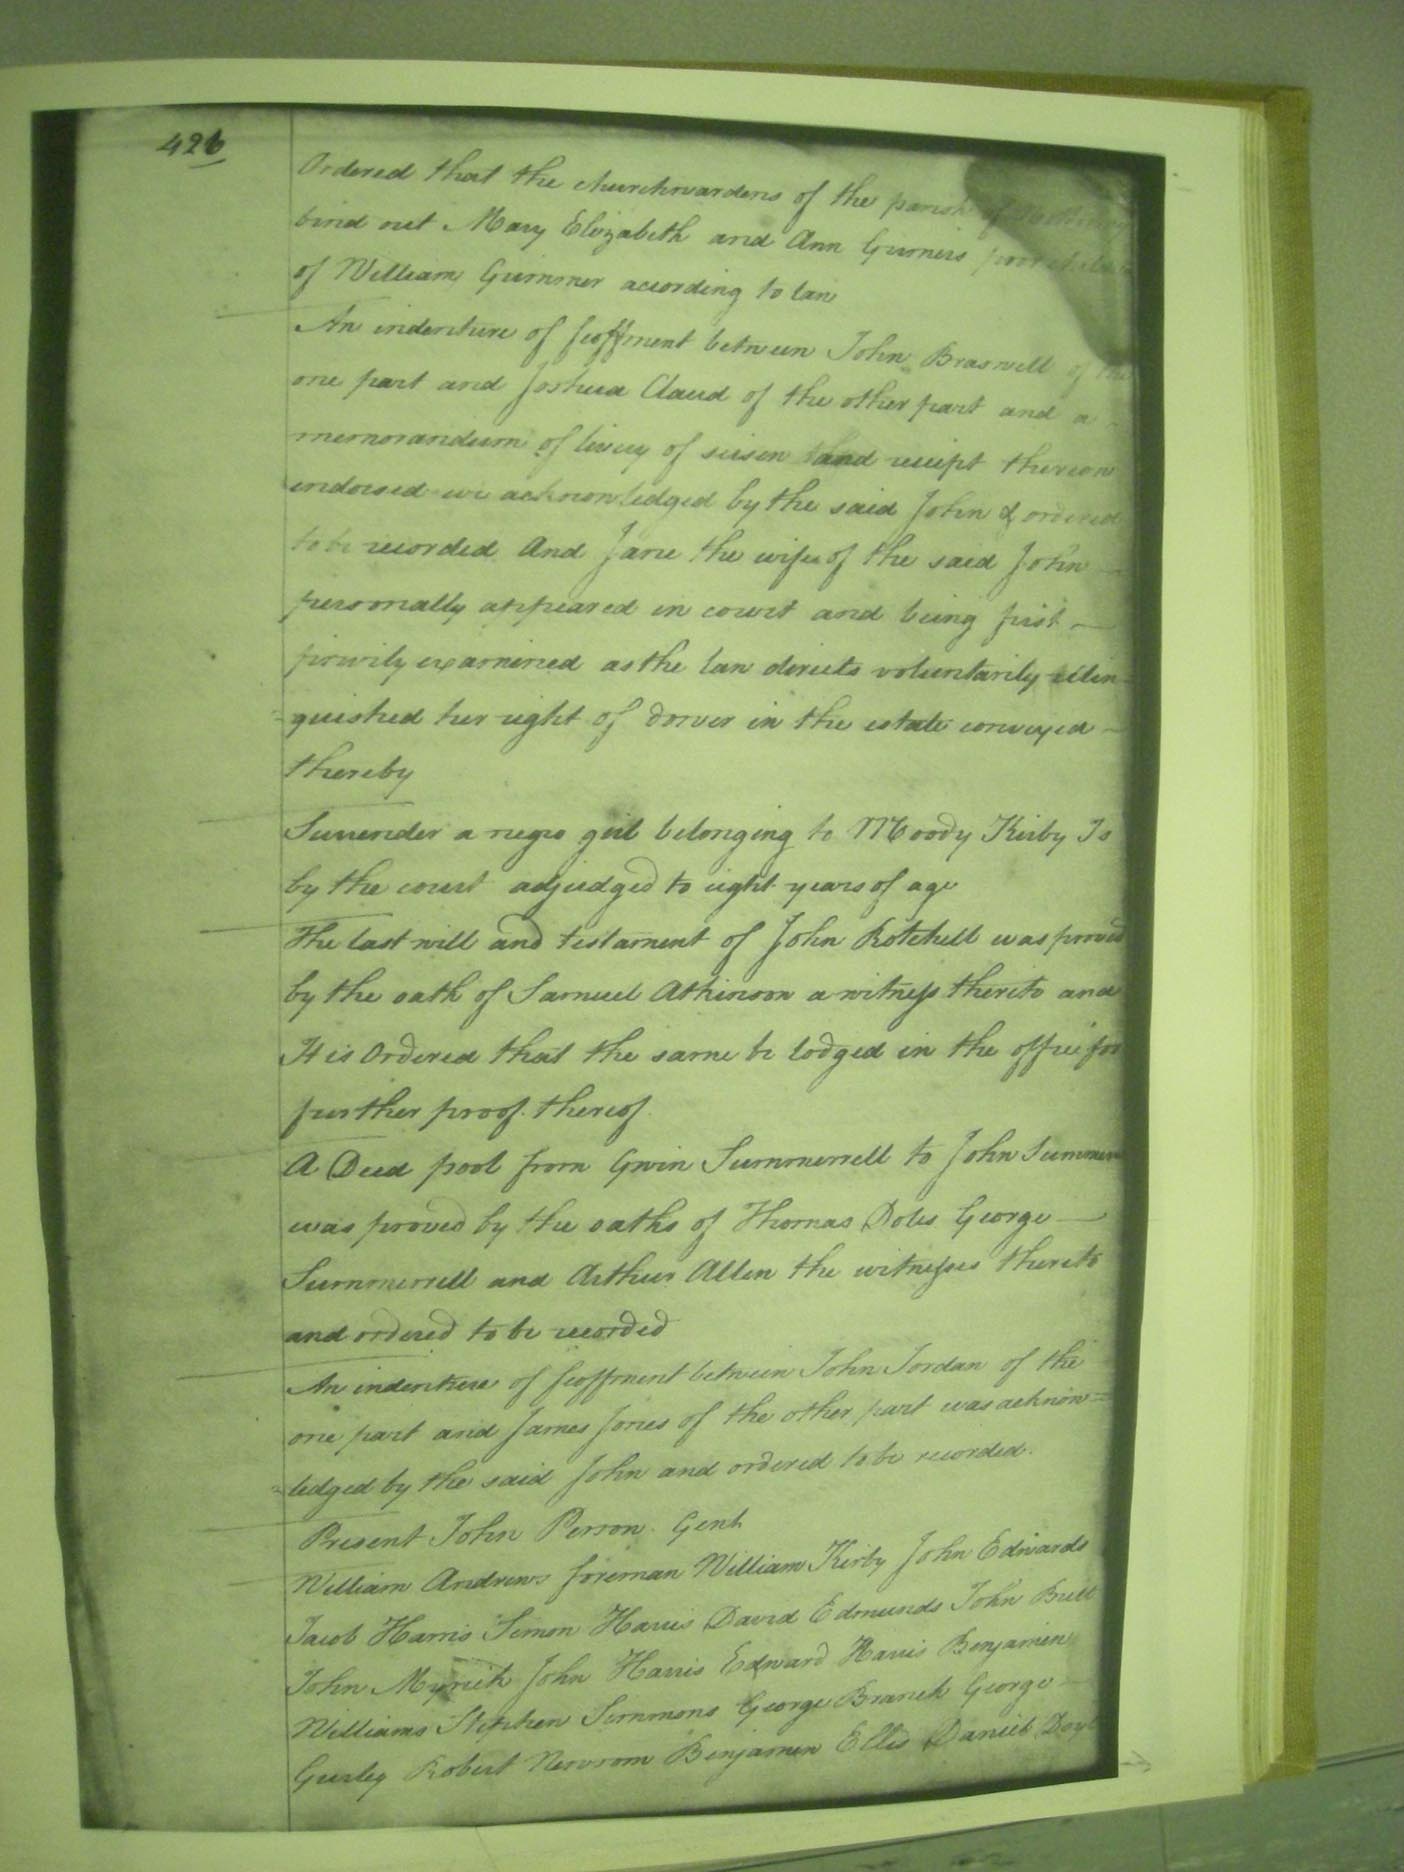 426
Ordered that the churchwardens of the parish of
bind out Mary Elizabeth and Ann Gumers poor
of William Gummer according to law
An indenture of feoffment between John Braswell of the
one part and Joshua Claud of the other part and a
memorandum of livery of seisen and receipt thereon
indorsed we acknowledged by the said John & ordered
to be recorded And Jane the wife of the said John
personally appeared in court and being first
privily examined as the law directs voluntarily relin=
=quished her right of Dower in the estate conveyed
thereby
Surrender a negro girl belonging to Moody Kirby Is
by the court adjudged to eight years of age
The last will and testament of John Rotchell was proved
by the oath of Samuel Atkinson a witness thereto and
It is Ordered that the same be lodged in the office for
further proof thereof
A Deed pool from Gwin Summerrell to John
was proved by the oaths of Thomas Doles George
Summerrell and Arthur Allen the witnesses thereto
and ordered to be recorded
An indenture of feoffment between John Jordan of the
one part and James Jones of the other part was acknow=
=ledged by the said John and ordered to be recorded.
Present John Person Gent
William Andrews foreman William Kirby John Edwards
Jacob Harris Simon Harris David Edmunds John Britt
John Myrick John Harris Edward Harris Benjamin
Williams Stephen Simmons George Branch George
Gurley Robert Newsom Benjamin Ellis Daniel